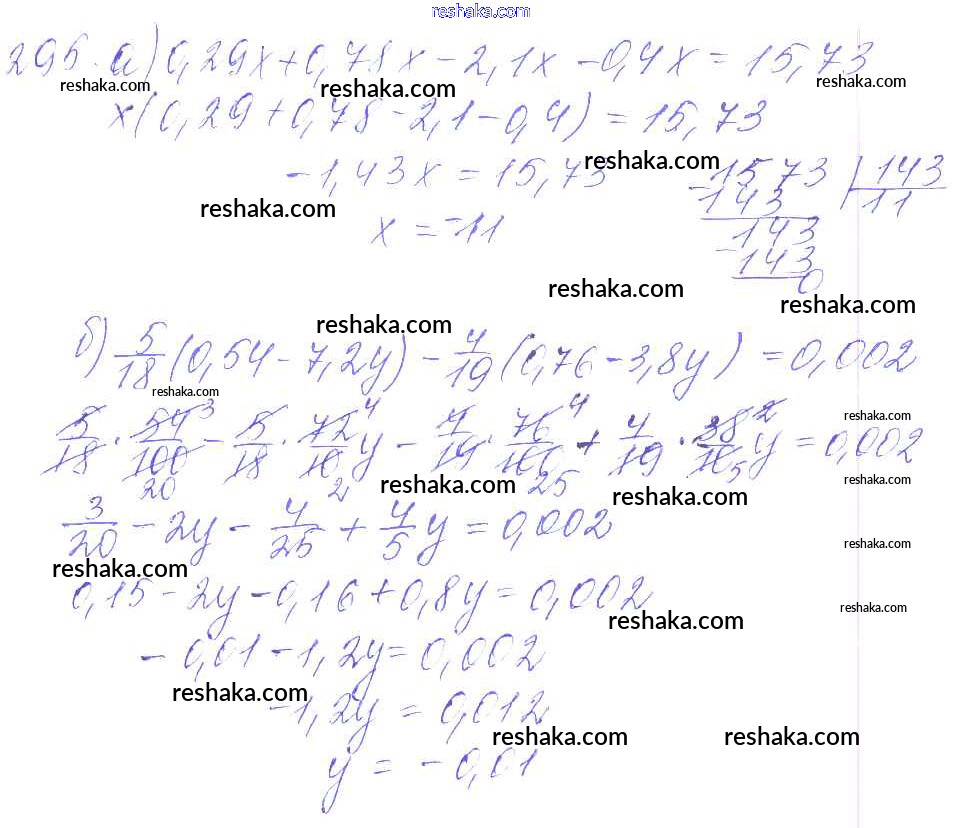 reshaka.com
295. а) 0,29x + 0,78x - 2,1x - 0,4x = 15,73
reshaka.com reshaka.com reshaka.com
x(0,29 + 0,78 - 2,1 - 0,4) = 15,73
-1,43x = 15,73 reshaka.com
x = -11 reshaka.com
-1573 | 143
143 | 11
143
-143
0
reshaka.com reshaka.com
reshaka.com
б) 5/18 (0,54 - 7,2y) - 4/19 (0,76 - 3,8y) = 0,002
reshaka.com
5/18 · 54/100 - 5/18 · 72/10 y - 4/19 · 76/100 + 4/19 · 38/10 y = 0,002
3 4 4 2
20 2 25 5
reshaka.com reshaka.com
reshaka.com reshaka.com
3/20 - 2y - 4/25 + 4/5 y = 0,002
reshaka.com reshaka.com
0,15 - 2y - 0,16 + 0,8y = 0,002
reshaka.com reshaka.com
-0,01 - 1,2y = 0,002
reshaka.com
-1,2y = 0,012
reshaka.com reshaka.com
y = -0,01